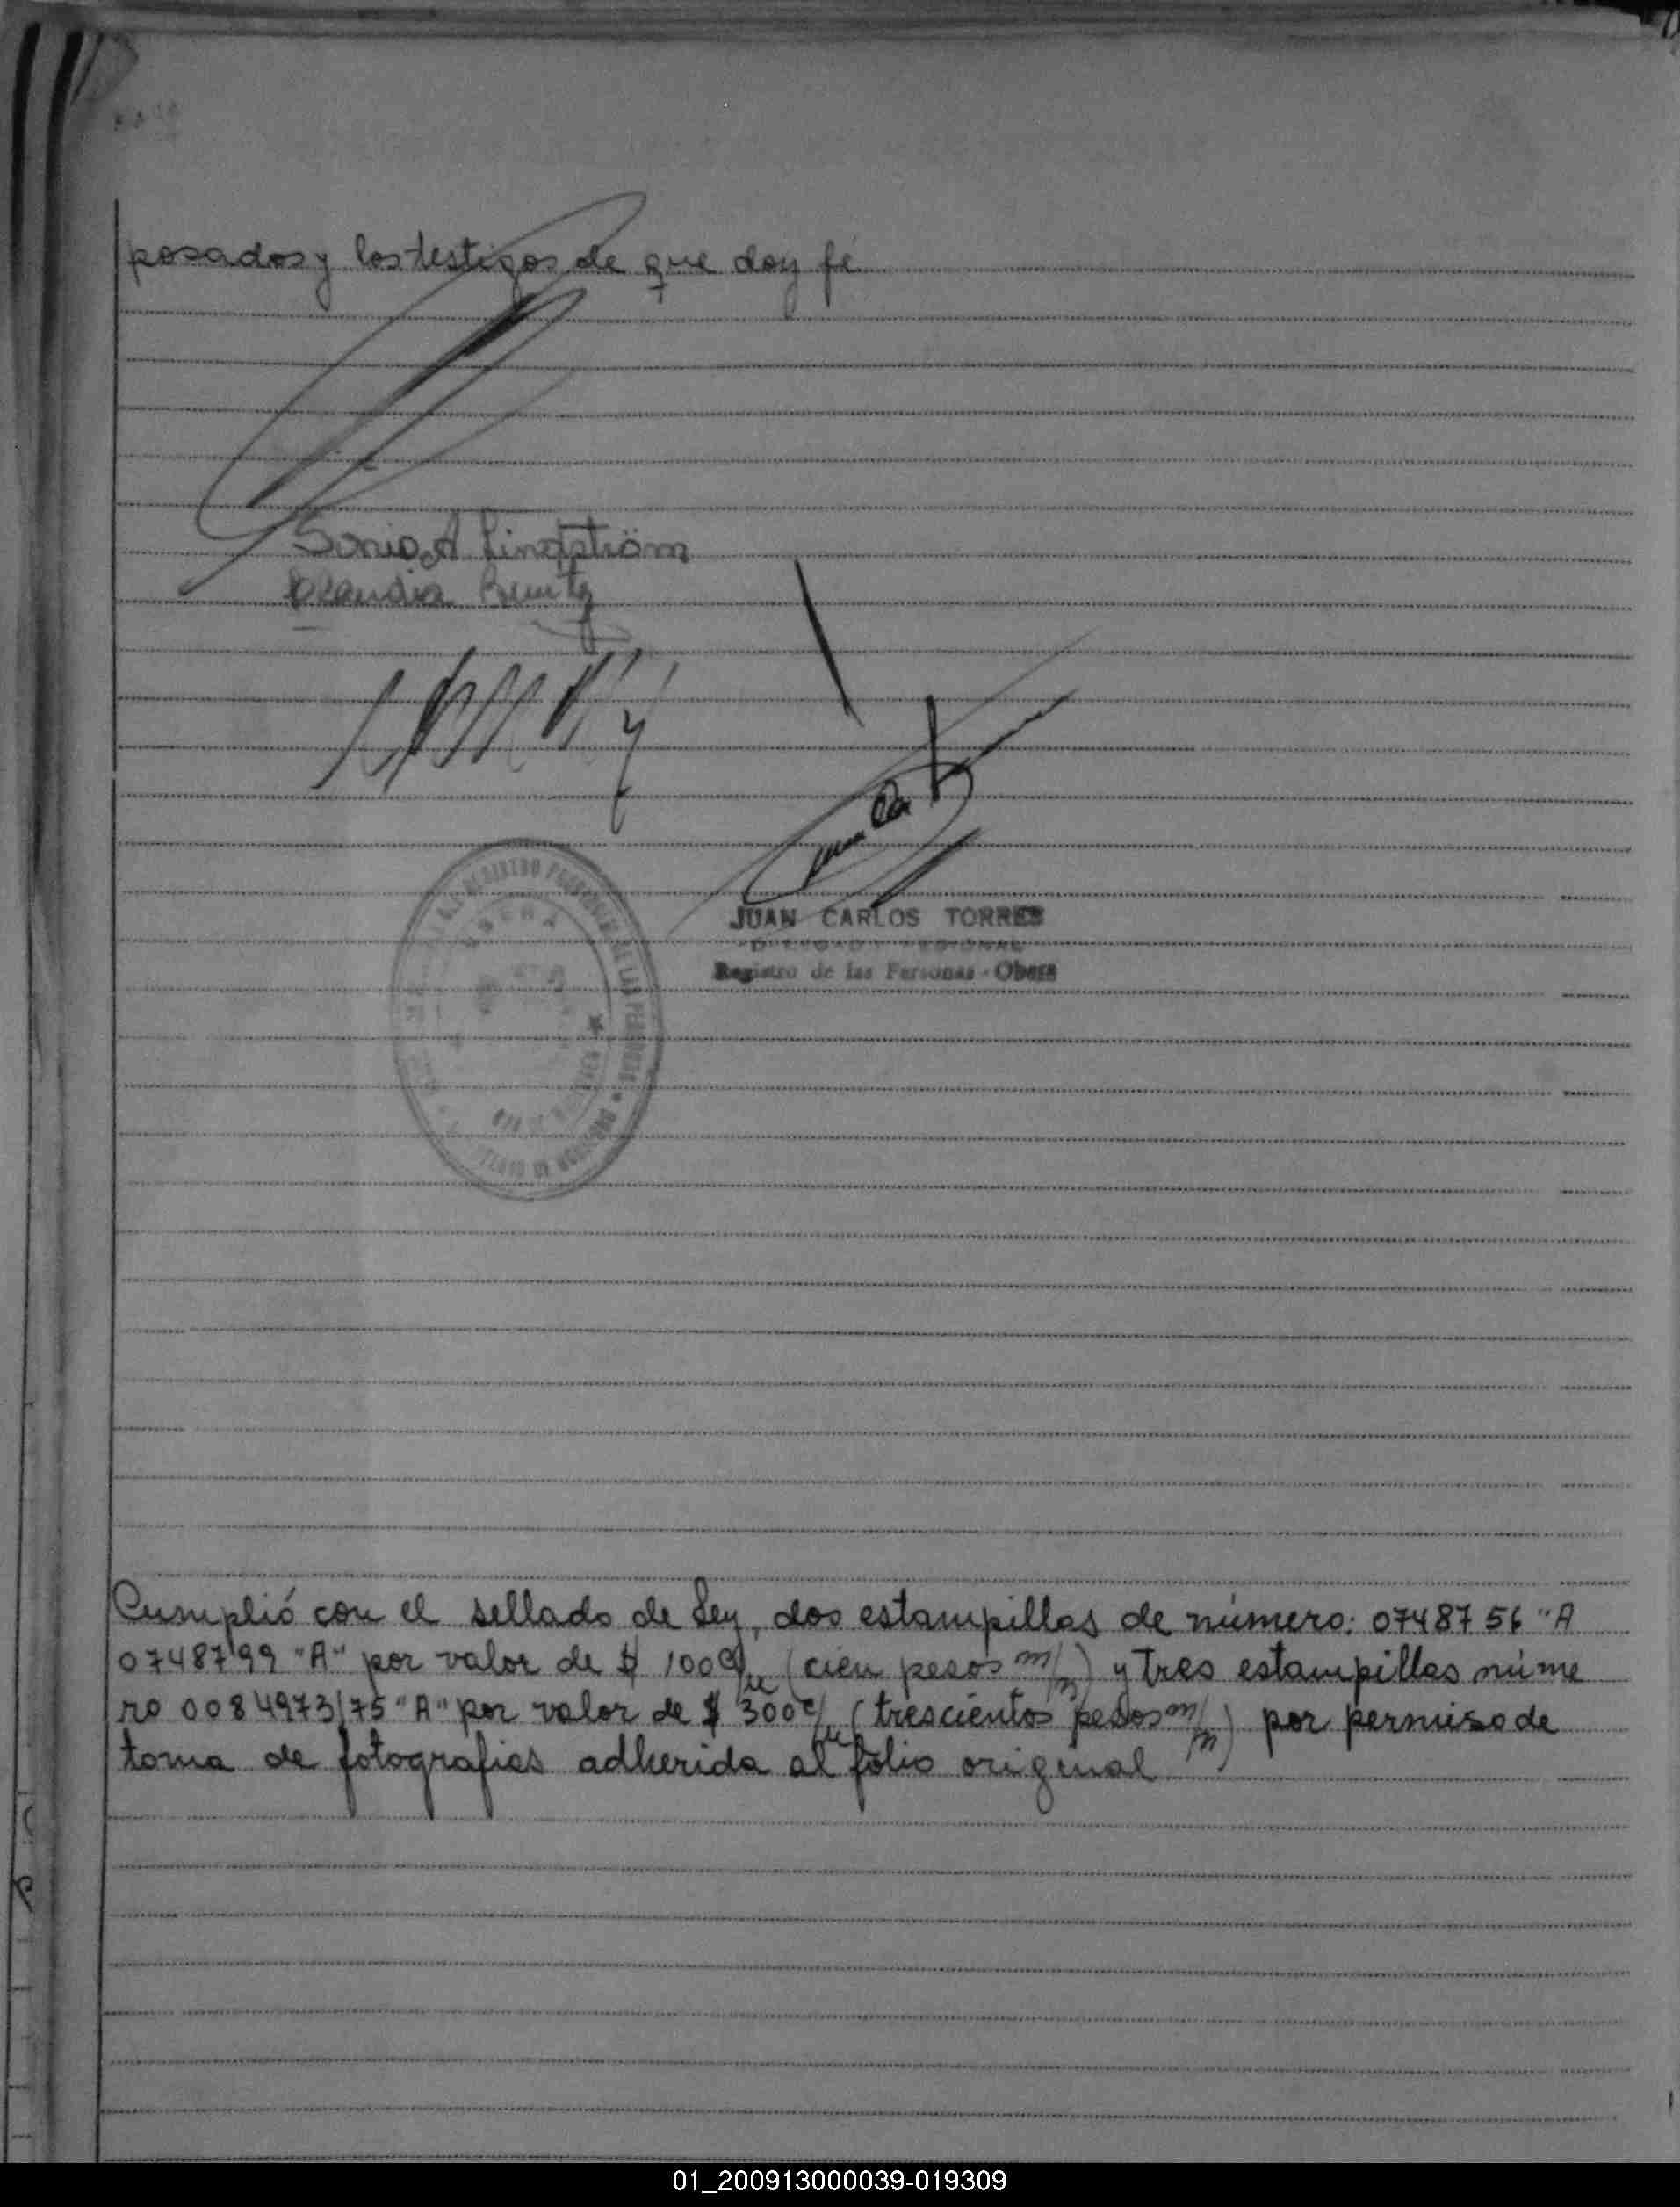 posados y los testigos de que doy fé
Sonia A Lindström
Claudia Benitez
JUAN CARLOS TORRES
DELEGADO REGIONAL
Registro de las Personas - Obera
Cumplió con el sellado de Ley, dos estampillas de número: 0748756 "A
0748799 "A" por valor de $ 100 c/u (cien pesos m/n) y tres estampillas núme
ro 0084973/75 "A" por valor de $ 300 c/u (trescientos pesos m/n) por permiso de
toma de fotografias adherida al folio original
01_200913000039-019309